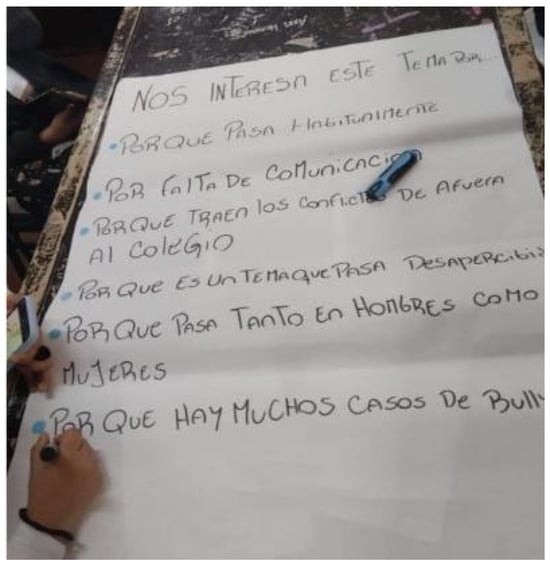 NOS INTERESA ESTE TEMA POR...
• PORQUE PASA HABITUALMENTE
• POR FALTA DE COMUNICACI
• PORQUE TRAEN LOS CONFLICT DE AFUERA
AL COLEGIO
• POR QUE ES UN TEMA QUE PASA DESAPERCIBI
• POR QUE PASA TANTO EN HOMBRES COMO
MUJERES
• POR QUE HAY MUCHOS CASOS DE BULLY